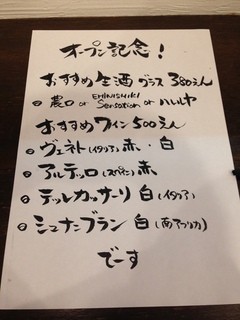 オープン記念!
おすすめ生酒 グラス 380えん
農口 or EMINISHIKI Sensation or ハルヤ
おすすめワイン 500えん
ヴェネト(イタリア) 赤・白
アルテッロ(スペイン) 赤
テッレカッサーリ 白(イタリア)
シュナンブラン 白(南アフリカ)
でーす